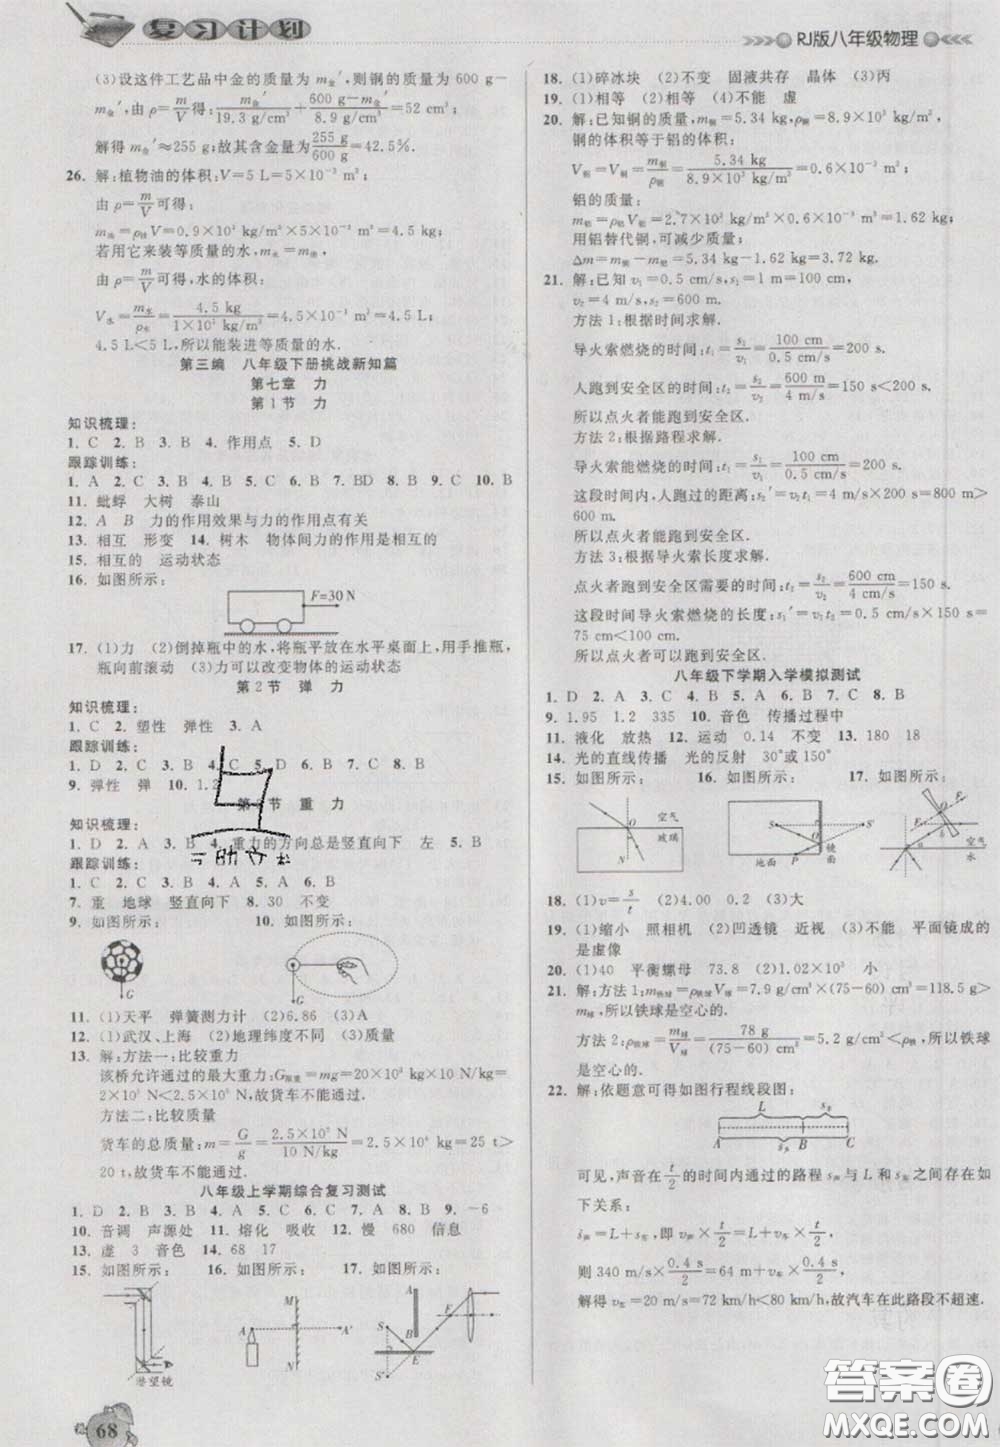 复习计划
RJ版八年级物理
(3)设这件工艺品中金的质量为 m金′,则铜的质量为 600 g-
m金′,由 ρ=m/V 得:m金′/19.3 g/cm³+(600 g-m金′)/8.9 g/cm³=52 cm³,
解得 m金′≈255 g;故其含金量为 255 g/600 g=42.5%.
26. 解:植物油的体积:V=5 L=5×10⁻³ m³,
由 ρ=m/V 可得:
m油=ρ油V=0.9×10³ kg/m³×5×10⁻³ m³=4.5 kg;
若用它来装等质量的水,m水=m油,
由 ρ=m/V 可得,水的体积:
V水=m水/ρ水=4.5 kg/1×10³ kg/m³=4.5×10⁻³ m³=4.5 L,
4.5 L<5 L,所以能装进等质量的水.
第三编 八年级下册挑战新知篇
第七章 力
第1节 力
知识梳理:
1. C 2. B 3. B 4. 作用点 5. D
跟踪训练:
1. A 2. C 3. B 4. C 5. B 6. B 7. BD 8. B 9. C 10. B
11. 蚍蜉 大树 泰山
12. A B 力的作用效果与力的作用点有关
13. 相互 形变 14. 树木 物体间力的作用是相互的
15. 相互的 运动状态
16. 如图所示:
F=30 N
17. (1)力 (2)倒掉瓶中的水,将瓶平放在水平桌面上,用手推瓶,
瓶向前滚动 (3)力可以改变物体的运动状态
第2节 弹 力
知识梳理:
1. C 2. 塑性 弹性 3. A
跟踪训练:
1. D 2. C 3. B 4. C 5. D 6. B 7. C 8. B
9. 弹性 弹 10. 1.2
节 重 力
知识梳理:
1. D 2. A 3. B 4. 重力的方向总是竖直向下 左 5. B
跟踪训练:
1. C 2. C 3. B 4. B 5. A 6. C
7. 重 地球 竖直向下 8. 30 不变
9. 如图所示: 10. 如图所示:
G
G
11. (1)天平 弹簧测力计 (2)6.86 (3)A
12. (1)武汉、上海 (2)地理纬度不同 (3)质量
13. 解:方法一:比较重力
该桥允许通过的最大重力:G限重=mg=20×10³ kg×10 N/kg=
2×10⁵ N<2.5×10⁵ N.故货车不能通过.
方法二:比较质量
货车的总质量:m=G/g=2.5×10⁵ N/10 N/kg=2.5×10⁴ kg=25 t>
20 t,故货车不能通过.
八年级上学期综合复习测试
1. D 2. B 3. A 4. C 5. C 6. C 7. A 8. B 9. -6
10. 音调 声源处 11. 熔化 吸收 12. 慢 680 信息
13. 虚 3 音色 14. 68 17
15. 如图所示: 16. 如图所示: 17. 如图所示:
潜望镜
M
A A′
N
A
B
S
E
F
S′
68
18. (1)碎冰块 (2)不变 固液共存 晶体 (3)丙
19. (1)相等 (2)相等 (4)不能 虚
20. 解:已知铜的质量,m铜=5.34 kg,ρ铜=8.9×10³ kg/m³,
铜的体积等于铝的体积:
V铝=V铜=m铜/ρ铜=5.34 kg/8.9×10³ kg/m³=0.6×10⁻³ m³,
铝的质量:
m铝=ρ铝V铝=2.7×10³ kg/m³×0.6×10⁻³ m³=1.62 kg;
用铝替代铜,可减少质量:
Δm=m铜-m铝=5.34 kg-1.62 kg=3.72 kg.
21. 解:已知 v₁=0.5 cm/s,s₁=1 m=100 cm,
v₂=4 m/s,s₂=600 m.
方法1:根据时间求解.
导火索燃烧的时间:t₁=s₁/v₁=100 cm/0.5 cm/s=200 s,
人跑到安全区的时间:t₂=s₂/v₂=600 m/4 m/s=150 s<200 s.
所以点火者能跑到安全区.
方法2:根据路程求解.
导火索能燃烧的时间:t₁=s₁/v₁=100 cm/0.5 cm/s=200 s,
这段时间内,人跑过的距离:s₂′=v₂t₁=4 m/s×200 s=800 m>
600 m.
所以点火者能跑到安全区.
方法3:根据导火索长度求解.
点火者跑到安全区需要的时间:t₂=s₂/v₂=600 cm/4 cm/s=150 s.
这段时间导火索燃烧的长度:s₁′=v₁t₂=0.5 cm/s×150 s=
75 cm<100 cm.
所以点火者可以跑到安全区.
八年级下学期入学模拟测试
1. D 2. A 3. C 4. B 5. A 6. D 7. C 8. B
9. 1.95 1.2 335 10. 音色 传播过程中
11. 液化 放热 12. 运动 0.14 不变 13. 180 18
14. 光的直线传播 光的反射 30°或150°
15. 如图所示: 16. 如图所示: 17. 如图所示:
O
空气
玻璃
N
S S′
O
P 镜面
地面
E
O
空气
水
18. (1)v=s/t (2)4.00 0.2 (3)大
19. (1)缩小 照相机 (2)凹透镜 近视 (3)不能 平面镜成的
是虚像
20. (1)40 平衡螺母 73.8 (2)1.02×10³ 小
21. 解:方法1:m铁球=ρ铁V球=7.9 g/cm³×(75-60)cm³=118.5 g>
m球,所以铁球是空心的.
方法2:ρ铁球=m球/V球=78 g/(75-60)cm³=5.2 g/cm³<ρ铁,所以铁球
是空心的.
22. 解:依题意可得如图行程线段图:
L s车
A B C
s声
可见,声音在 t/2 的时间内通过的路程 s声与 L 和 s车存在如
下关系:
s声=L+s车,即 v声×t/2=L+v车×t/2,
则 340 m/s×0.4 s/2=64 m+v车×0.4 s/2
解得 v车=20 m/s=72 km/h<80 km/h,故汽车在此路段不超速.
答案圈
MXQE.COM